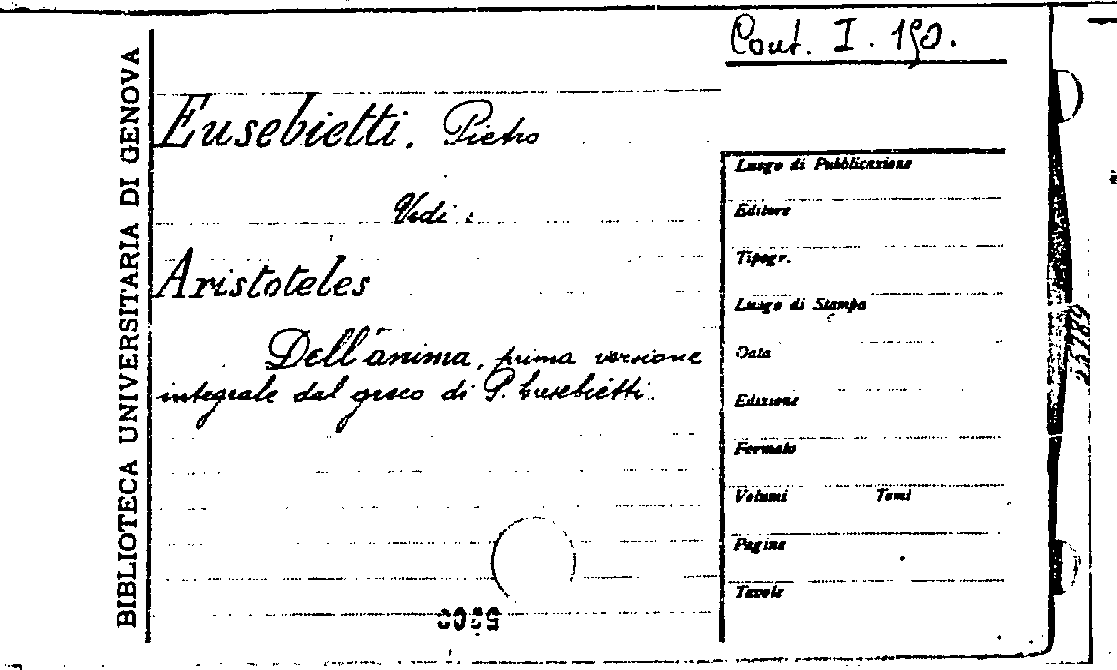 Cont. I. 190.
BIBLIOTECA UNIVERSITARIA DI GENOVA
Eusebietti. Pietro
Vedi:
Aristoteles
Dell'anima, prima versione
integrale dal greco di P. Eusebietti.
Luogo di Pubblicazione
Editore
Tipogr.
Luogo di Stampa
Data
Edizione
Formato
Volumi Tomi
Pagine
Tavole